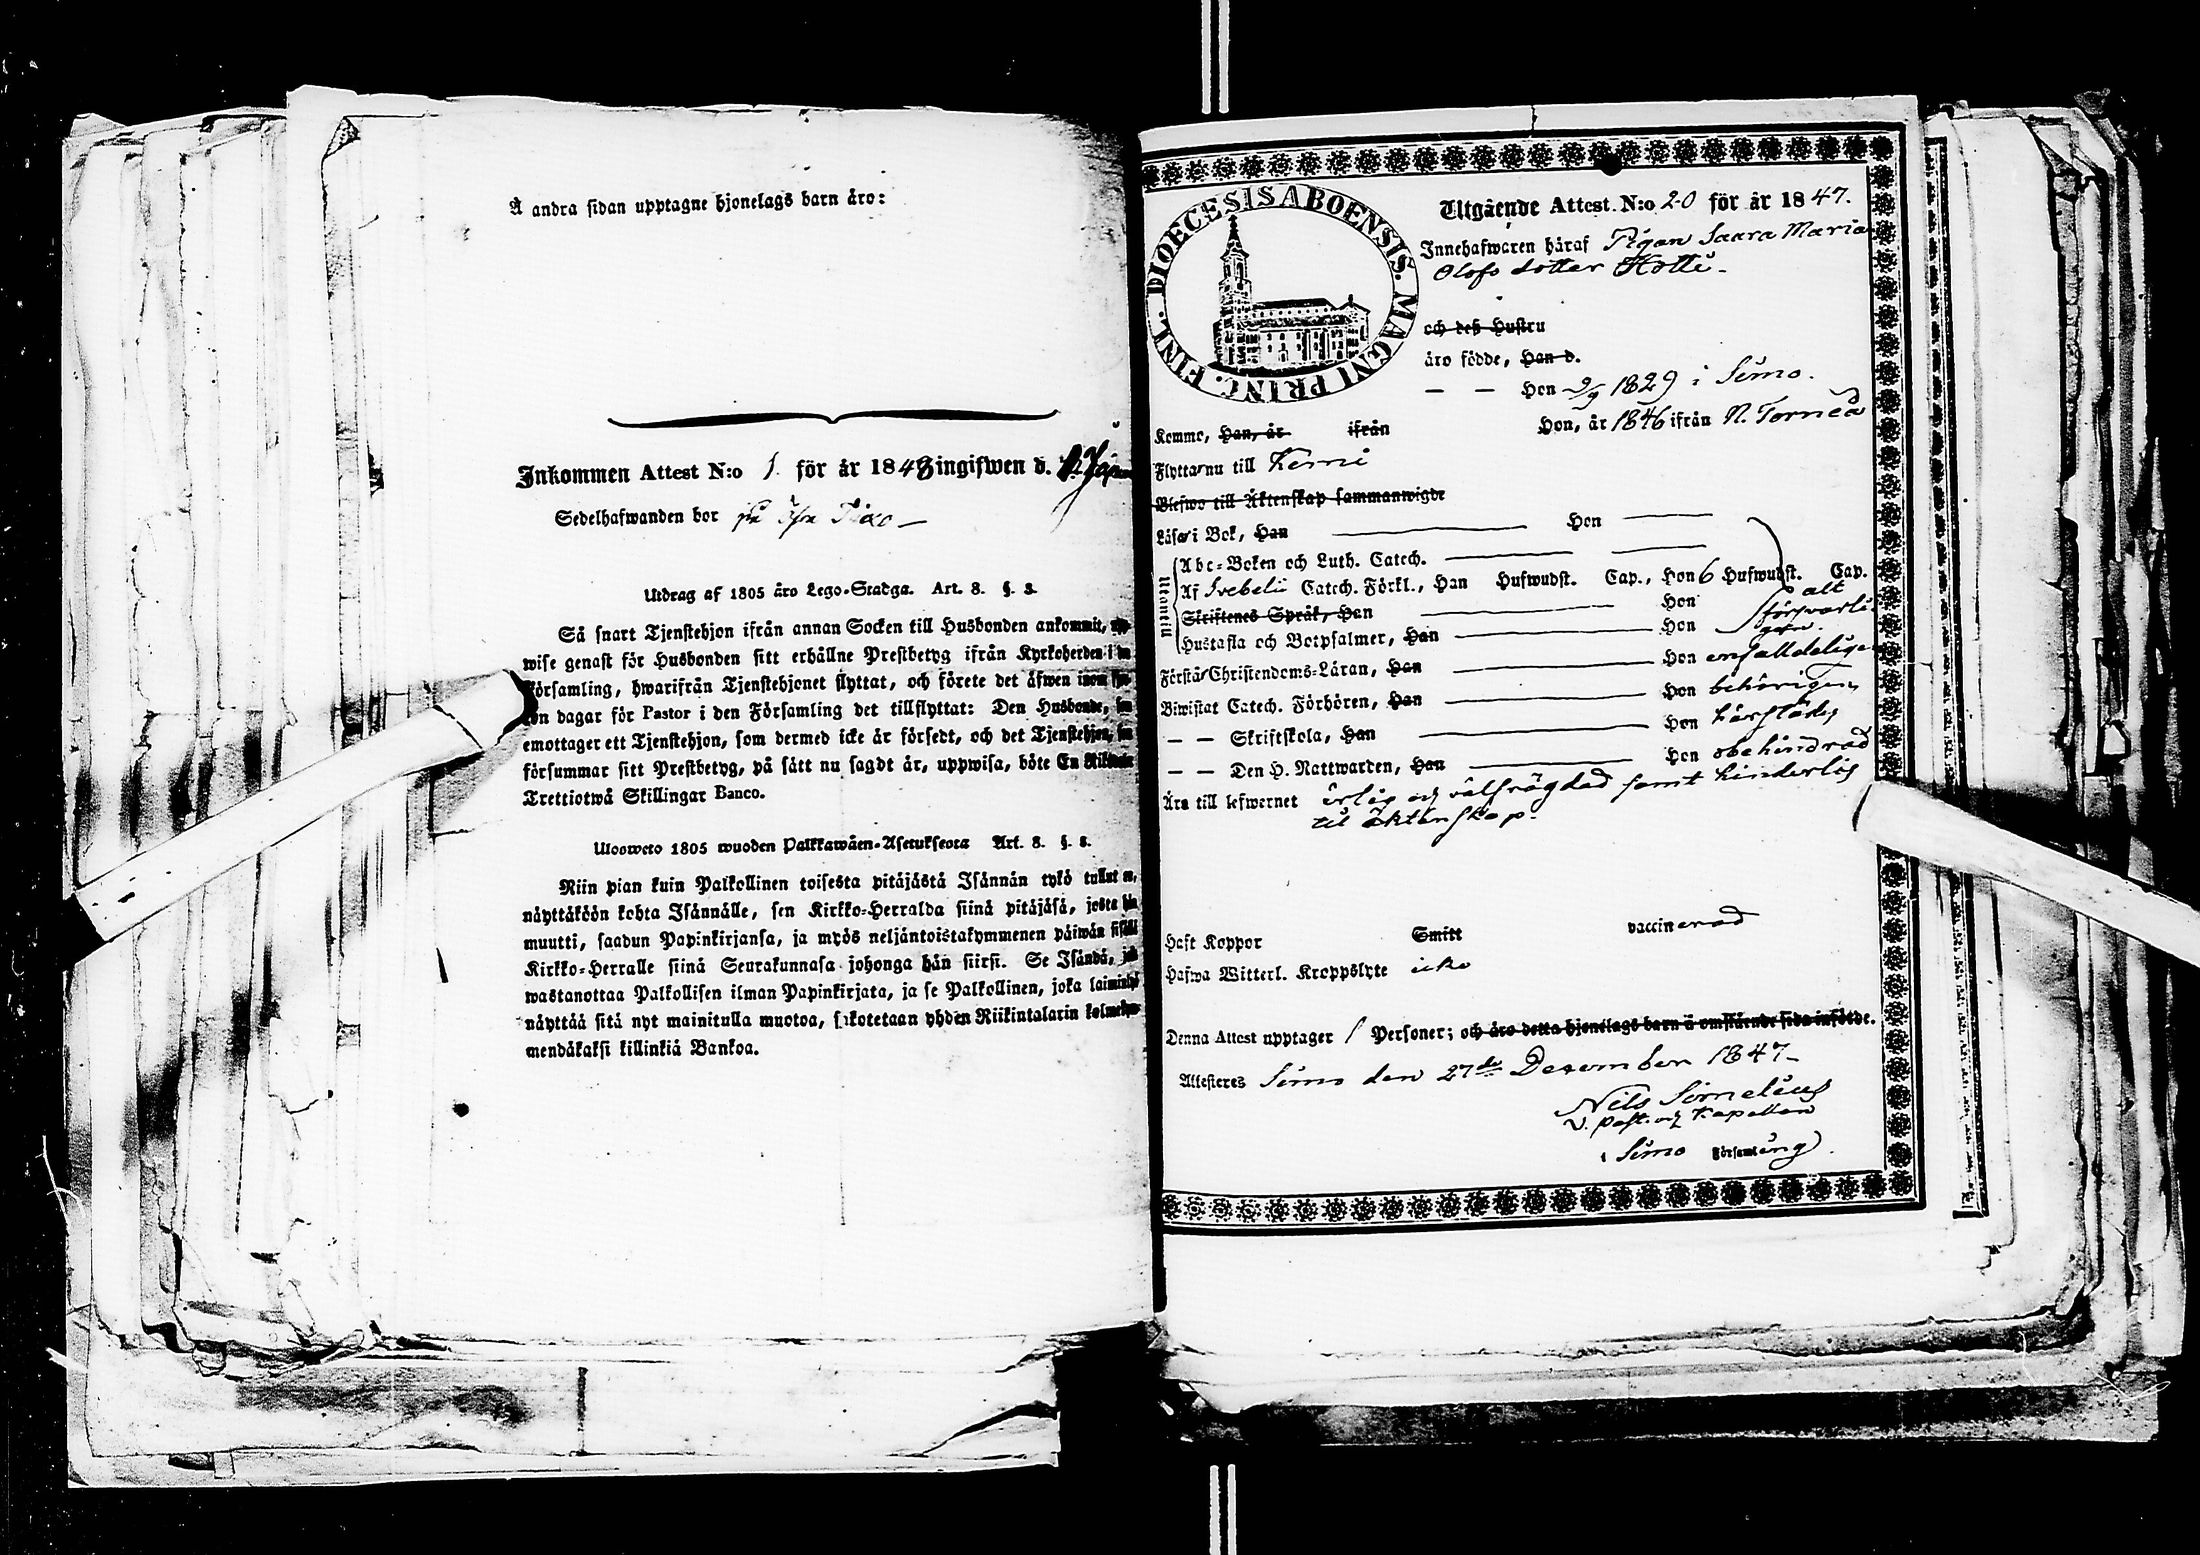 Å andra sidan upptagne hjonelags barn äro:
Inkommen Attest N:o 1. för år 1848 ingifwen d.
Sedelhafwanden bor på
Utdrag af 1805 års Lego-Stadga. Art. 8. §. 8.
Så snart Tjenstehjon ifrån annan Socken till Husbonden ankommit,
wise genast för Husbonden sitt erhållne Prestbetyg ifrån Kyrkoherden i
Församling, hwarifrån Tjenstehjonet flyttat, och förete det äfwen inom
ton dagar för Pastor i den Församling det tillflyttat: Den Husbonde,
emottager ett Tjenstehjon, som dermed icke är försedt, och det Tjenstehjon,
försummar sitt Prestbetyg, på sätt nu sagdt är, uppwisa, böte En Riksdaler
Trettiotwå Skillingar Banco.
Ulosweto 1805 wuoden Palkkawäen-Asetuksesta Art. 8. §. 8.
Niin pian kuin Palkollinen toisesta pitäjästä Isännän tykö tullut
näyttäköön kohta Isännälle, sen Kirkko-Herralda siinä pitäjäsä, josta hän
muutti, saadun Papinkirjansa, ja myös neljäntoistakymmenen päiwän sisällä
Kirkko-Herralle siinä Seurakunnasa johonga hän siirsi. Se Isändä,
wastanottaa Palkollisen ilman Papinkirjata, ja se Palkollinen, joka
näyttää sitä nyt mainitulla muotoa, sakotetaan yhden Riikintalarin
mendäkaksi killinkiä Bankoa.
DIOECESIS ABOENSIS. MAGNI PRINC. FINL.
Utgående Attest. N:o 20 för år 1847.
Innehafwaren häraf Pigan Saara Maria
Olofs dotter Hotti
och deß Hustru
äro födde, Han d.
— — Hon 9/9 1829 i Simo.
Komne, Han, år ifrån Hon, år 1846 ifrån N. Torneå
Flytta nu till Kemi
Blefwo till Äktenskap sammanwigde
Läsa i Bok, Han Hon
Utantill
Abc-Boken och Luth. Catech.
Af Svebelii Catech. Förkl., Han Hufwudst. Cap., Hon 6 Hufwudst. Cap.
Skriftenes Språk, Han Hon alt
Hustafla och Botpsalmer, Han Hon försvarli
gen.
Förstå Christendoms-Läran, Han Hon enfalldeligen
Biwistat Catech. Förhören, Han Hon behörigen
— — Skriftskola, Han Hon härstädes
— — Den H. Nattwarden, Han Hon obehindrad
Äro till lefwernet ärlig och välfrägdad samt hinderlös
til äktenskap.
Haft Koppor Smitt vaccinerad
Hafwa Witterl. Kroppslyte icke
Denna Attest upptager 1 Personer; och äro detta hjonelags barn å omstående sida införde.
Attesteres Simo den 27de December 1847
Nils
V. Past. och Kapellan
i Simo Församling.